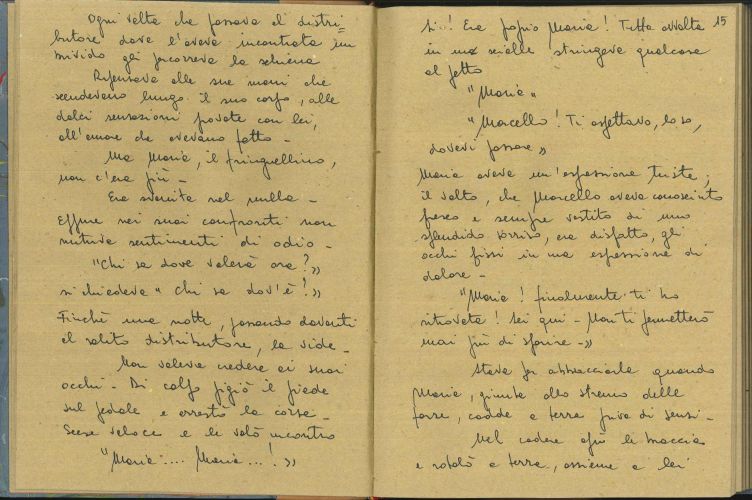 Ogni volta che passava dal distri-
butore dove l'aveva incontrata un
brivido gli percorreva la schiena
Ripensava alle sue mani che
scendevano lungo il suo corpo, alle
dolci sensazioni provate con lei,
all'amore che avevano fatto -
Ma Maria, il fringuellino,
non c'era più -
Era svanita nel nulla -
Eppure nei suoi confronti non
nutriva sentimenti di odio -
"Chi sa dove volerà ora?"
si chiedeva "Chi sa dov'è!"
Finché una notte, passando davanti
al solito distributore, la vide -
Non voleva credere ai suoi
occhi - Di colpo pigiò il piede
sul pedale e arrestò la corsa -
Scese veloce e le volò incontro
"Maria.... Maria...!"
15
Sì! Era proprio Maria! Tutta avvolta
in uno scialle stringeva qualcosa
al petto
"Maria"
"Marcello! Ti aspettavo, lo so,
dovevi passare"
Maria aveva un'espressione triste;
il volto, che Marcello aveva conosciuto
fresco e sempre vestito di uno
splendido sorriso, era disfatto, gli
occhi fissi in una espressione di
dolore -
"Maria! finalmente ti ho
ritrovata! Sei qui - Non ti permetterò
mai più di sparire -"
Stava per abbracciarla quando
Maria, giunta allo stremo delle
forze, cadde a terra priva di sensi -
Nel cadere aprì le braccia
e rotolò a terra, assieme a lei